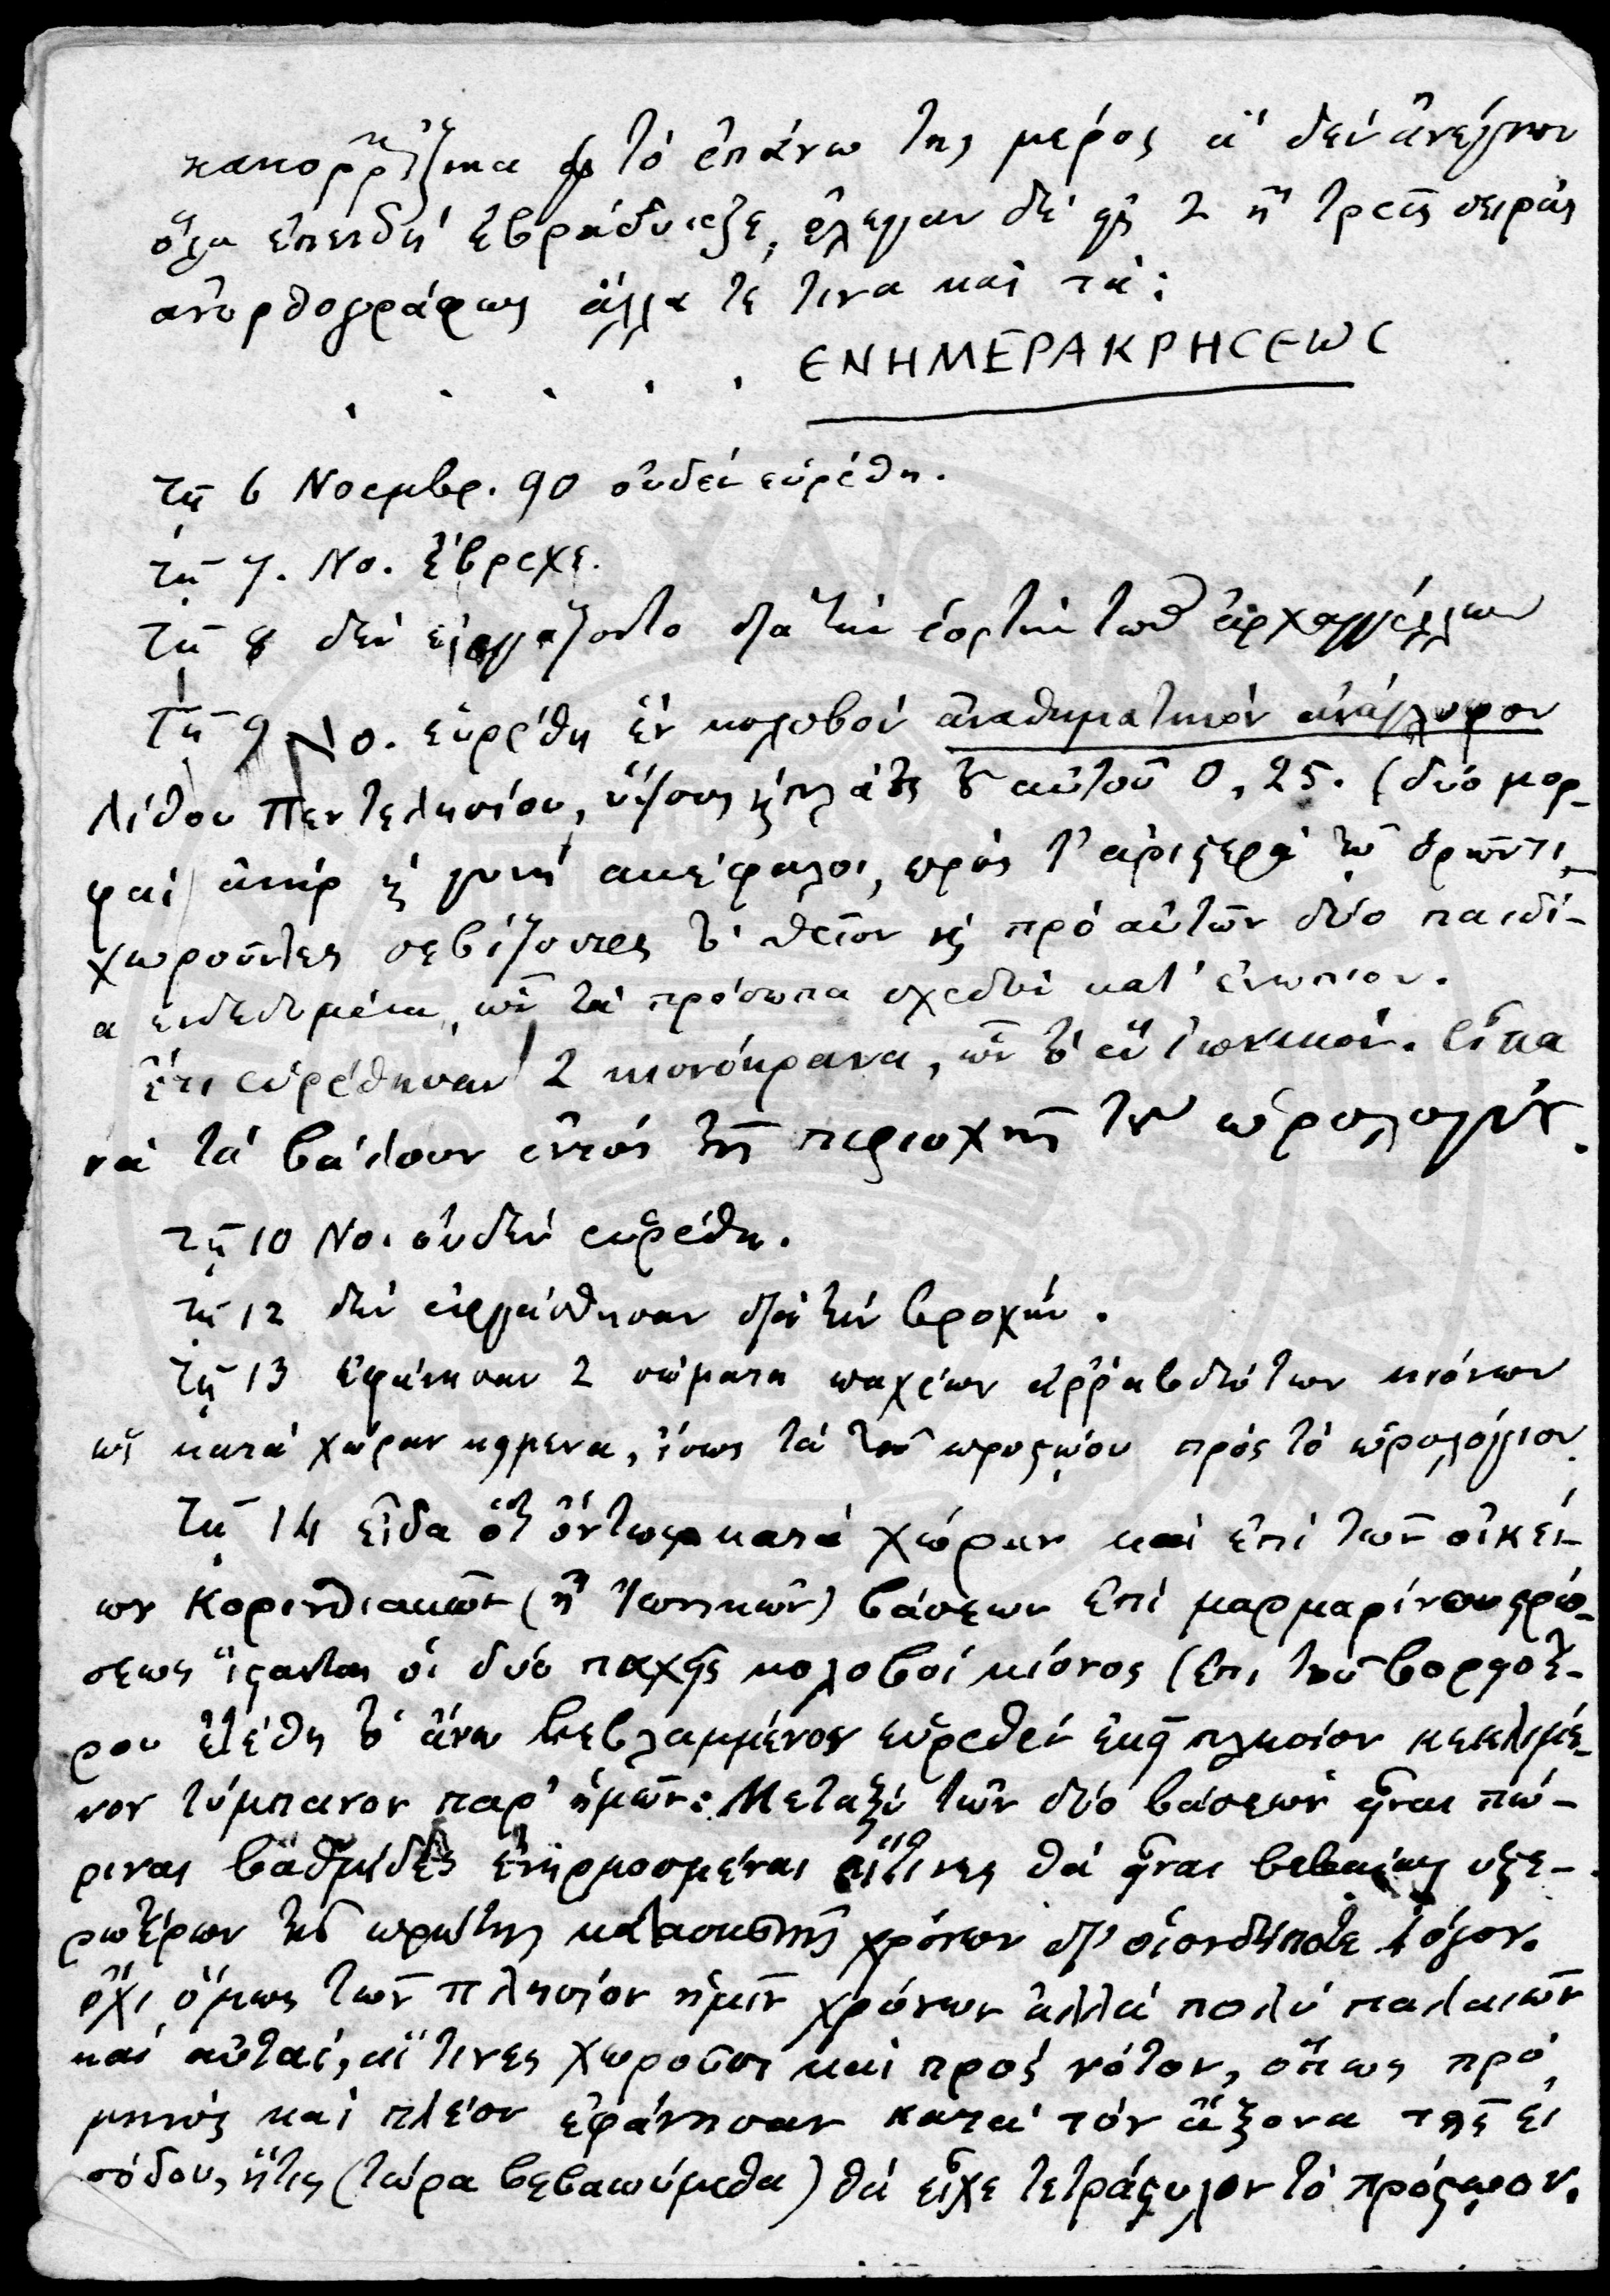 τὸ ἐπάνω της μέρος ἃ δὲν ἀνέγνων
ὅλα ἐπειδὴ ἐβράδυαζε, ἔλεγαν δὲ εἰς 2 ἢ τρεῖς σειρὰς
ἀνορθογράφως ἄλλα τέ τινα καὶ τά:
. . . . . ЄΝΗΜΕΡΑΚΡΗCЄΩC
τῇ 6 Νοεμβρ. 90 οὐδὲν εὑρέθη.
τῇ 7. Νο. ἔβρεχε.
τῇ 8 δὲν εἰργάζοντο διὰ τὴν ἑορτὴν τῶν ἀρχαγγέλλων
τῇ 9 Νο. εὑρέθη ἓν κολοβὸν ἀναθηματικὸν ἀνάγλυφον
λίθου Πεντελησίου, ὕψους καὶ πλάτους τοῦ αὐτοῦ 0,25. (δύο μορ-
φαὶ ἀνὴρ καὶ γυνὴ ἀκέφαλοι, πρὸς τ' ἀριστερὰ τῷ ὁρῶντι
χωροῦντες σεβίζοντες τὸ θεῖον καὶ πρὸ αὐτῶν δύο παιδί-
α ἐνδεδυμένα, ὧν τὰ πρόσωπα σχεδὸν κατ' ἐνώπιον.
ἔτι εὑρέθησαν 2 κιονόκρανα, ὧν τὸ ἓν Ἰωνικόν. εἶπα
νὰ τὰ βάλουν ἐντὸς τῆς περιοχῆς τοῦ ὡρολογίου.
τῇ 10 Νο. οὐδὲν εὑρέθη.
τῇ 12 δὲν εἰργάσθησαν διὰ τὴν βροχήν.
τῇ 13 ἐφάνησαν 2 σώματα παχέων ἀῤῥαβδώτων κιόνων
ὡς κατὰ χώραν κείμενα, ἴσως τὰ τοῦ προστῴου πρὸς τὸ ὡρολόγιον.
τῇ 14 εἶδα ὅτι ὄντως κατὰ χώραν καὶ ἐπὶ τῶν οἰκεί-
ων Κορινθιακῶν (ἢ Ἰωνικῶν) βάσεων ἐπὶ μαρμαρίνου στρώ-
σεως ἵστανται οἱ δύο παχεῖς κολοβοὶ κίονος (ἐπὶ τοῦ βορειοτέ-
ρου ἐτέθη τὸ ἄνω εὑρεθὲν ἐκεῖ πλησίον κεκλιμέ-
νον τύμπανον παρ' ἡμῶν. Μεταξὺ τῶν δύο βάσεων εἶναι πώ-
ριναι βαθμίδες ἐνηρμοσμέναι αἵτινες θὰ εἶναι βεβαίως ὑστε-
ρωτέρων τῆς πρώτης κατασκευῆς χρόνων δι' οἱονδήποτε λόγον.
ὄχι ὅμως τῶν πλησίον ἡμῖν χρόνων ἀλλὰ πολὺ παλαιῶν
καὶ αὐταί, αἵτινες χωροῦσι καὶ πρὸς νότον, ὅπως πρὸ
μηνὸς καὶ πλέον ἐφάνησαν κατὰ τὸν ἄξονα τῆς εἰ
σόδου, ἥτις (τώρα βεβαιούμεθα) θὰ εἶχε τετράστυλον τὸ πρόστῳον.